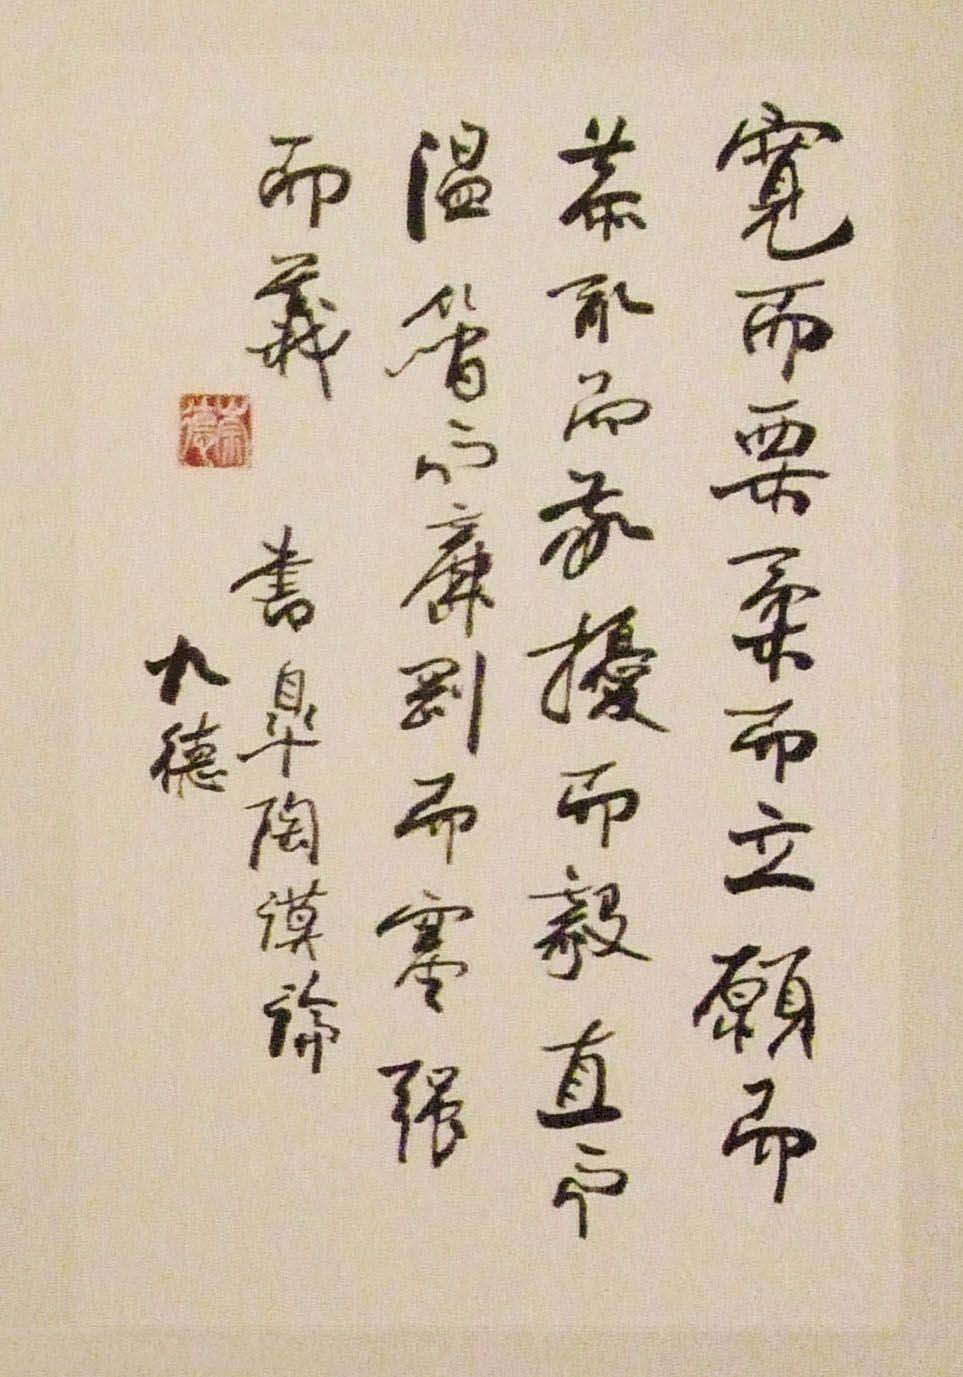 寬而栗柔而立願而
恭而敬擾而毅直而
溫簡而廉剛而塞張
而義
書皋陶謨論
九德